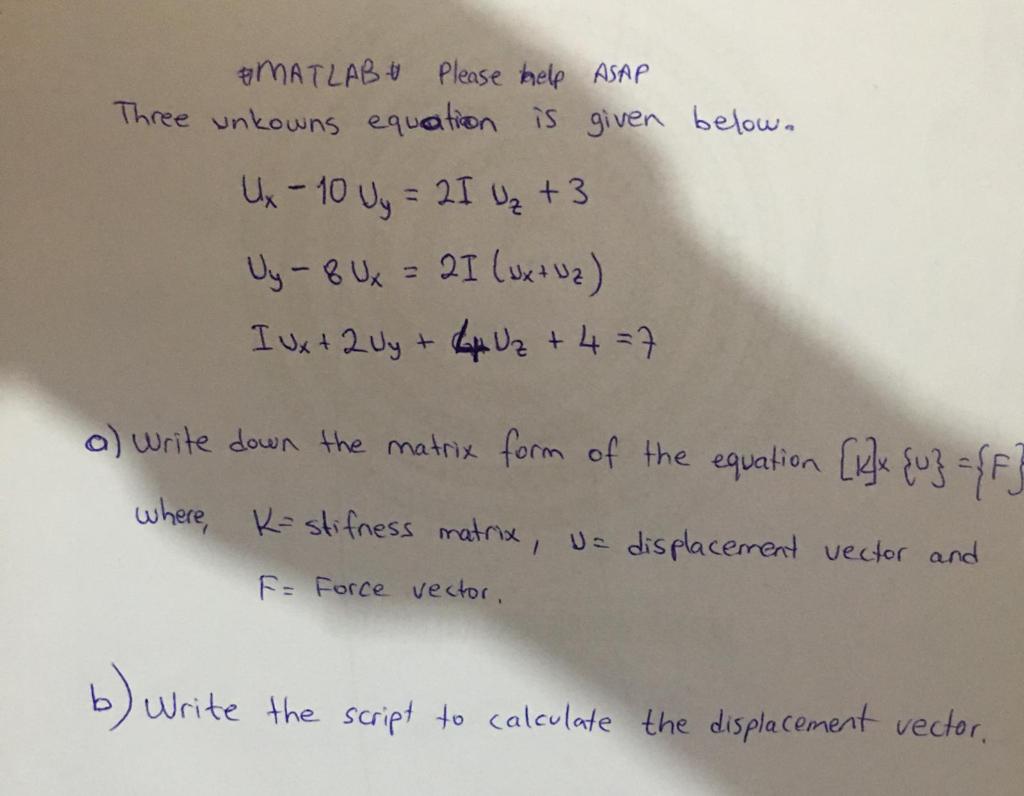 #MATLAB# Please help ASAP
Three unkowns equation is given below.
Ux - 10 Uy = 2I Uz + 3
Uy - 8 Ux = 2I (Ux + Uz)
I Ux + 2 Uy + 4 Uz + 4 = 7
a) Write down the matrix form of the equation [K]x {U} = {F}
where, K = stifness matrix, U = displacement vector and
F = Force vector.
b) Write the script to calculate the displacement vector.